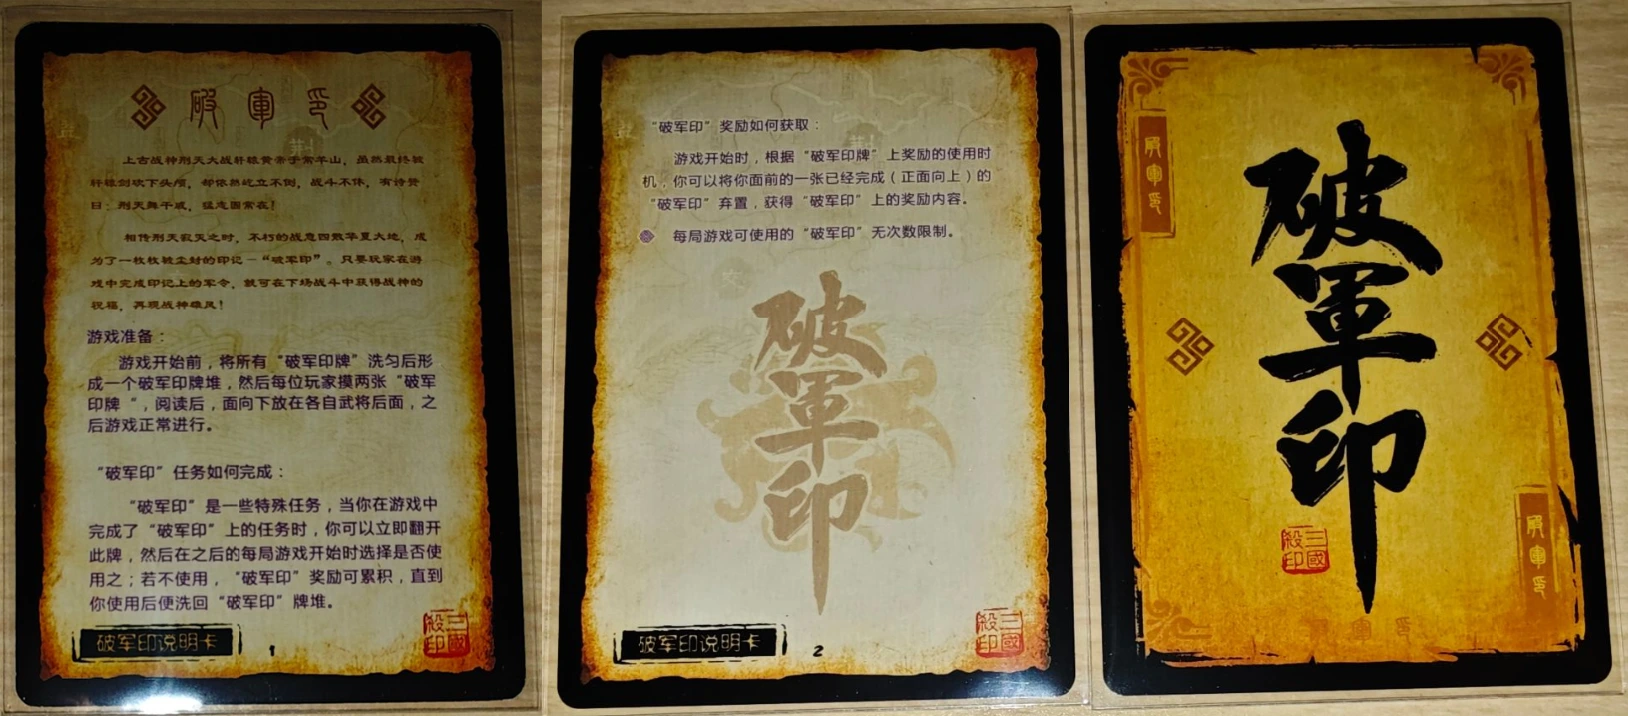 破軍印
上古战神刑天大战轩辕黄帝于常羊山，虽然最终被
轩辕剑砍下头颅，却依然屹立不倒，战斗不休，有诗赞
曰：刑天舞干戚，猛志固常在！
相传刑天寂灭之时，不朽的战意四散华夏大地，成
为了一枚枚被尘封的印记－“破军印”。只要玩家在游
戏中完成印记上的军令，就可在下场战斗中获得战神的
祝福，再现战神雄风！
游戏准备：
游戏开始前，将所有“破军印牌”洗匀后形
成一个破军印牌堆，然后每位玩家摸两张“破军
印牌“，阅读后，面向下放在各自武将后面，之
后游戏正常进行。
“破军印”任务如何完成：
“破军印”是一些特殊任务，当你在游戏中
完成了“破军印”上的任务时，你可以立即翻开
此牌，然后在之后的每局游戏开始时选择是否使
用之；若不使用，“破军印”奖励可累积，直到
你使用后便洗回“破军印”牌堆。
破军印说明卡
1
三國
殺印
“破军印”奖励如何获取：
游戏开始时，根据“破军印牌”上奖励的使用时
机，你可以将你面前的一张已经完成（正面向上）的
“破军印”弃置，获得“破军印”上的奖励内容。
每局游戏可使用的“破军印”无次数限制。
破軍印
破军印说明卡
2
三國
殺印
破軍印
破軍印
三國
殺印
破軍印